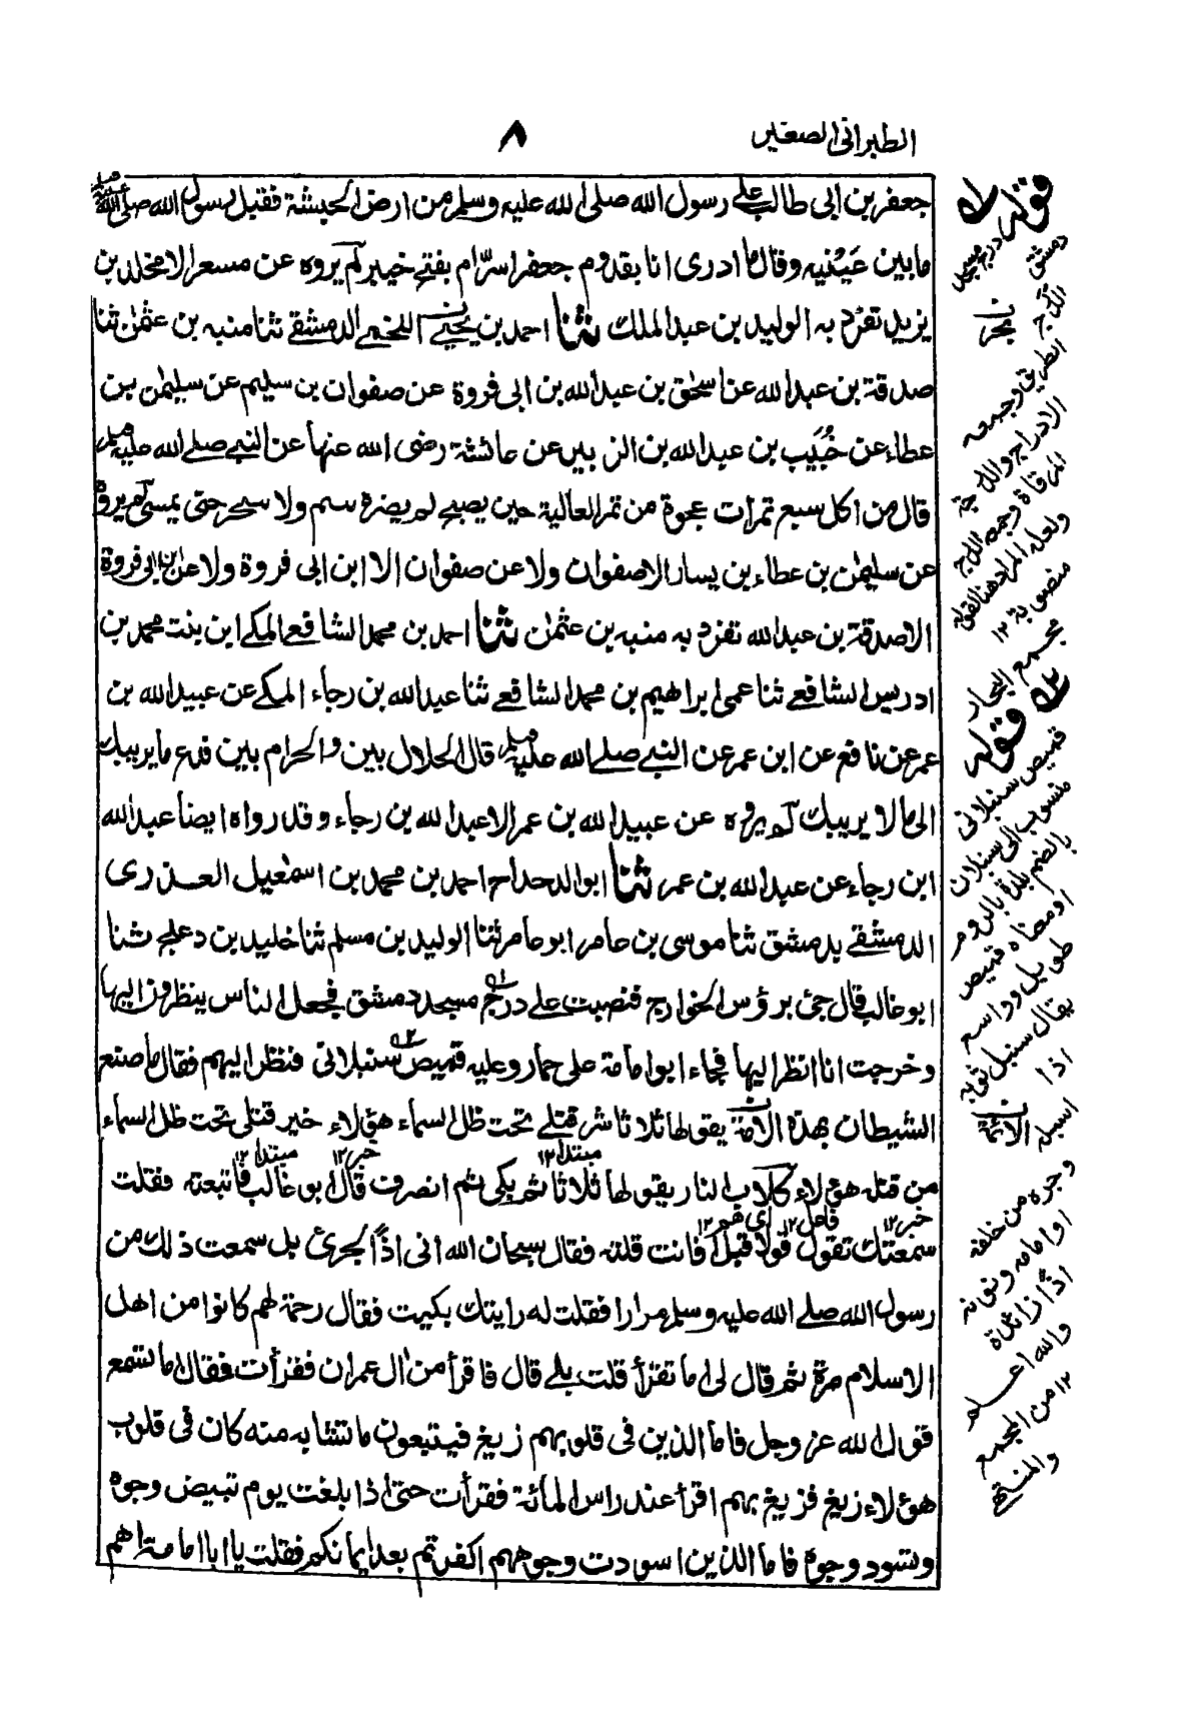 الطبرانی الصغیر
٨
جعفر بن ابی طالب علے رسول الله صلی الله علیه وسلم من ارض الحبشة فقبل رسول الله صلی الله علیه وسلم
ما بین عَیْنیه وقال ما ادری انا بقدوم جعفر اسرّ ام بفتح خیبر لم یروه عن مسعر الا مخلد بن
یزید تفرّد به الولید بن عبد الملك ثنا احمد بن یحیی اللخمے الدمشقے ثنا منبه بن عثمٰن ثنا
صدقة بن عبد الله عن اسحٰق بن عبد الله بن ابی فروة عن صفوان بن سلیم عن سلیمٰن بن
عطاء عن خُبَیب بن عبد الله بن الزبیر عن عائشة رضی الله عنها عن النبے صلے الله علیه وسلم
قال من اکل سبع تمرات عجوة من تمر العالیة حین یصبح لم یضره سم ولا سحر حتی یمسی لم یروه
عن سلیمٰن بن عطاء بن یسار الا صفوان ولا عن صفوان الا ابن ابی فروة ولا عن ابن ابی فروة
الا صدقة بن عبد الله تفرد به منبه بن عثمٰن ثنا احمد بن محمد الشافعے المکے ابن بنت محمد بن
ادریس الشافعے ثنا عمی ابراهیم بن محمد الشافعے ثنا عبد الله بن رجاء المکے عن عبید الله بن
عمر عن نافع عن ابن عمر عن النبے صلے الله علیه وسلم قال الحلال بین والحرام بین فدع ما یریبك
الی ما لا یریبك لم یروه عن عبید الله بن عمر الا عبد الله بن رجاء وقد رواه ایضا عبد الله
ابن رجاء عن عبد الله بن عمر ثنا ابو الدحداح احمد بن محمد بن اسمٰعیل العذری
الدمشقے بدمشق ثنا موسی بن عامر ابو عامر ثنا الولید بن مسلم ثنا خلید بن دعلج ثنا
ابو غالب قال جئ برؤس الخوارج فنصبت علے درج مسجد دمشق فجعل الناس ینظرون الیها
وخرجت انا انظر الیها فجاء ابو امامة علی حمار وعلیه قمیص سنبلانی فنظر الیهم فقال ما صنع
الشیطان بهذه الامة یقولها ثلاثا شر قتلے تحت ظل السماء هؤلاء خیر قتلی تحت ظل السماء
من قتله هؤلاء کلاب النار یقولها ثلاثا ثم بکی ثم انصرف قال ابو غالب فاتبعته فقلت
سمعتك تقول قولا قبل أفانت قلته فقال سبحان الله انی اذًا لجرئ بل سمعت ذلك من
رسول الله صلے الله علیه وسلم مرارا فقلت له رایتك بکیت فقال رحمة لهم کانوا من اهل
الاسلام مرة ثم قال لی اما تقرأ قلت بلے قال فاقرأ من اٰل عمران فقرأت فقال اما تسمع
قول الله عز وجل فاما الذین فی قلوبهم زیغ فیتبعون ما تشابه منه کان فی قلوب
هؤلاء زیغ فزیغ بهم اقرأ عند راس المائة فقرأت حتی اذا بلغت یوم تبیض وجوه
وتسود وجوه فاما الذین اسودت وجوههم اکفرتم بعد ایمانکم فقلت یا ابا امامة اهم
قوله درج مسجد
دمشق
الدرج
الطریق وجمعه
الادراج والدرجة
المرقاة وجمعه الدرج
ولعله المراد هنا لقوله
منصوبة ١٢
مجمع البحار
قوله
قمیص سنبلانی
منسوب الی سنبلان
بالضم بلدة بالروم
او معناه قمیص
طویل وواسع
یقال سنبل ثوبه
اذا
اسبله
وجره من خلفه
او امامه ونونه
اذًا زائدة
والله اعلم
١٢ من المجمع
والمنتهے